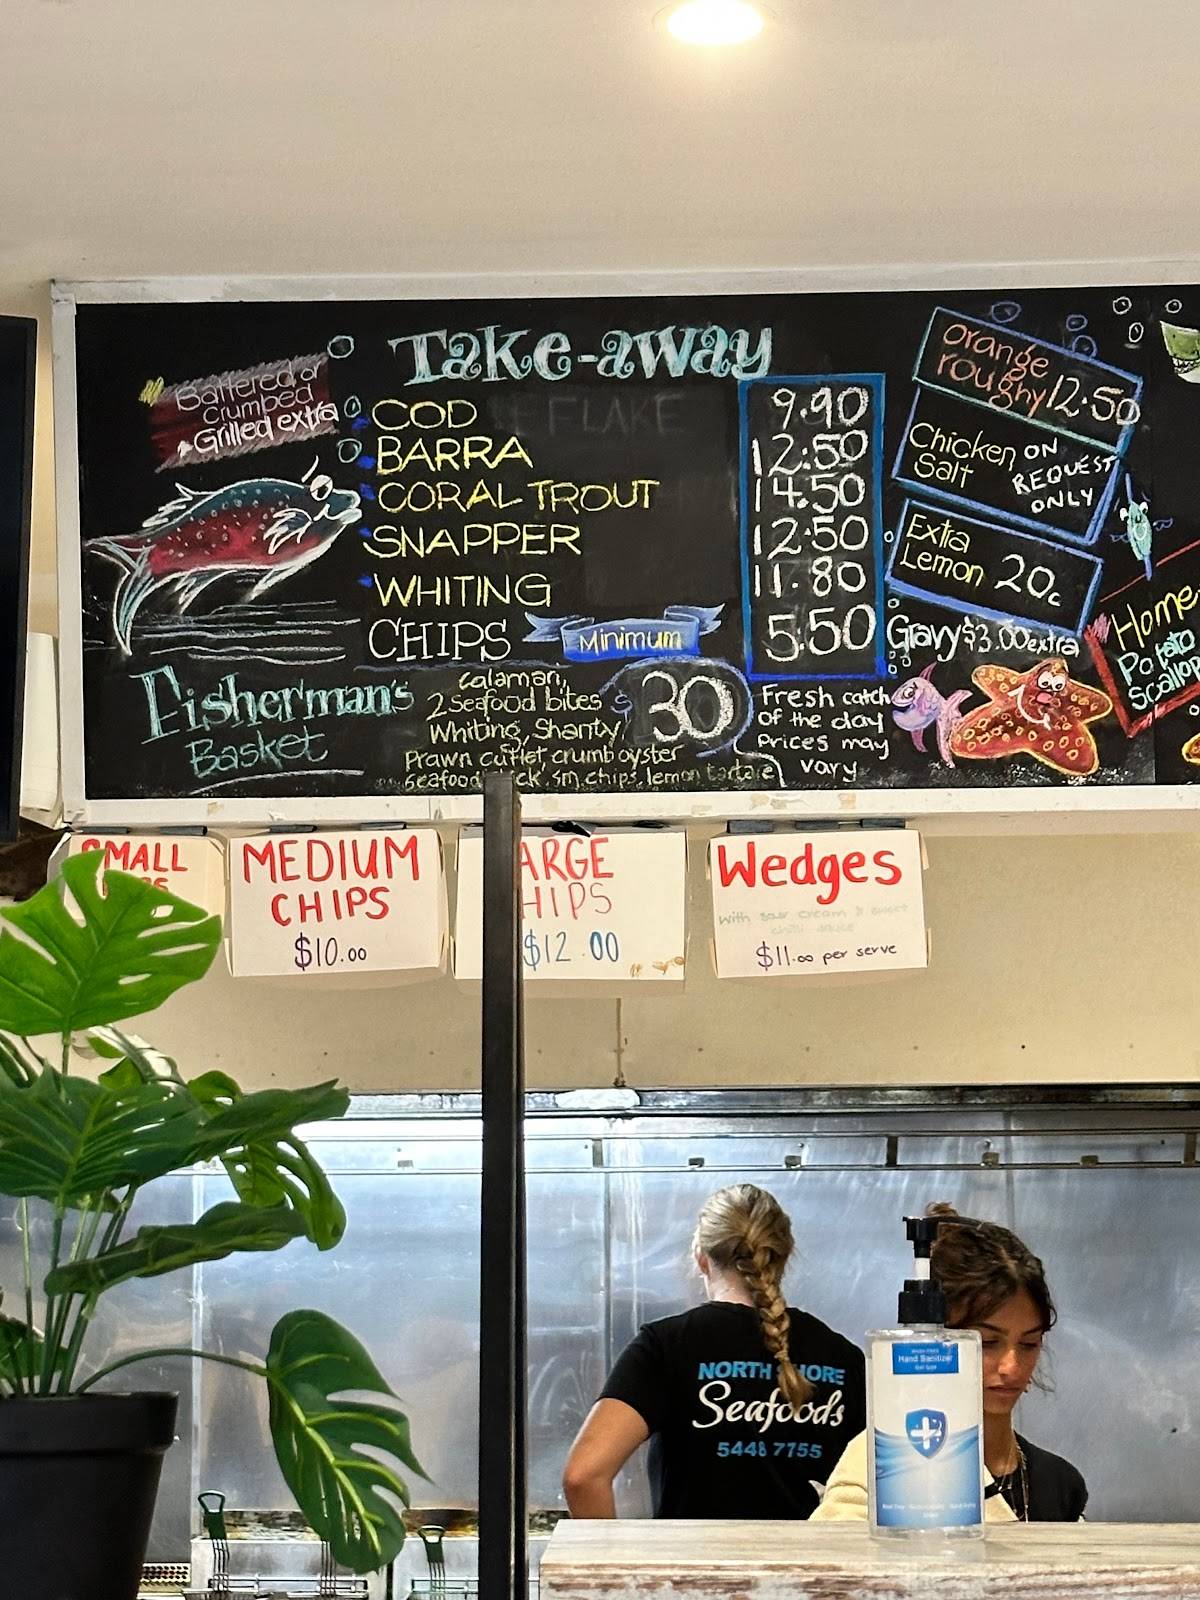 Take-away
Battered or
crumbed
Grilled extra
COD 9.90
BARRA 12:50
CORAL TROUT 14.50
SNAPPER 12:50
WHITING 11.80
CHIPS Minimum 5.50
FLAKE
Fisherman's
Basket
calamari,
2 seafood bites
Whiting, Shanty,
Prawn cutlet, crumb oyster
seafood sm.chips, lemon tartare
$30
Fresh catch
of the day
Prices may
vary
orange
roughy 12.50
Chicken
Salt
ON
REQUEST
ONLY
Extra
Lemon 20c
Gravy $3.00 extra
Home
Potato
Scallop
SMALL
MEDIUM
CHIPS
$10.00
ARGE
HIPS
$12.00
Wedges
With sour cream & sweet
chilli sauce
$11.00 per serve
NORTH SHORE
Seafoods
5448 7755
Hand Sanitizer